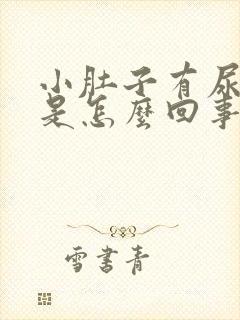 小肚子有尿
是怎麼回事
雪書青